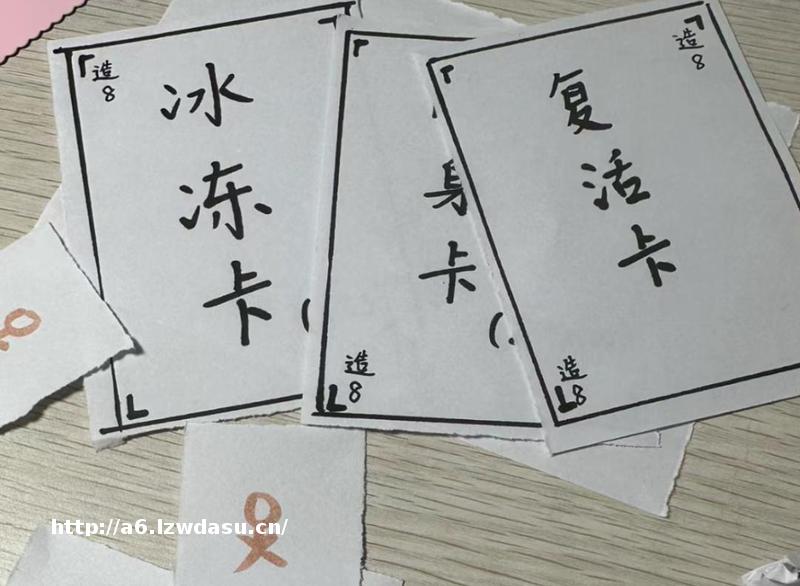 造
8
冰
冻
卡
身
卡
造
8
造
8
复
活
卡
造
8
http://a6.lzwdasu.cn/